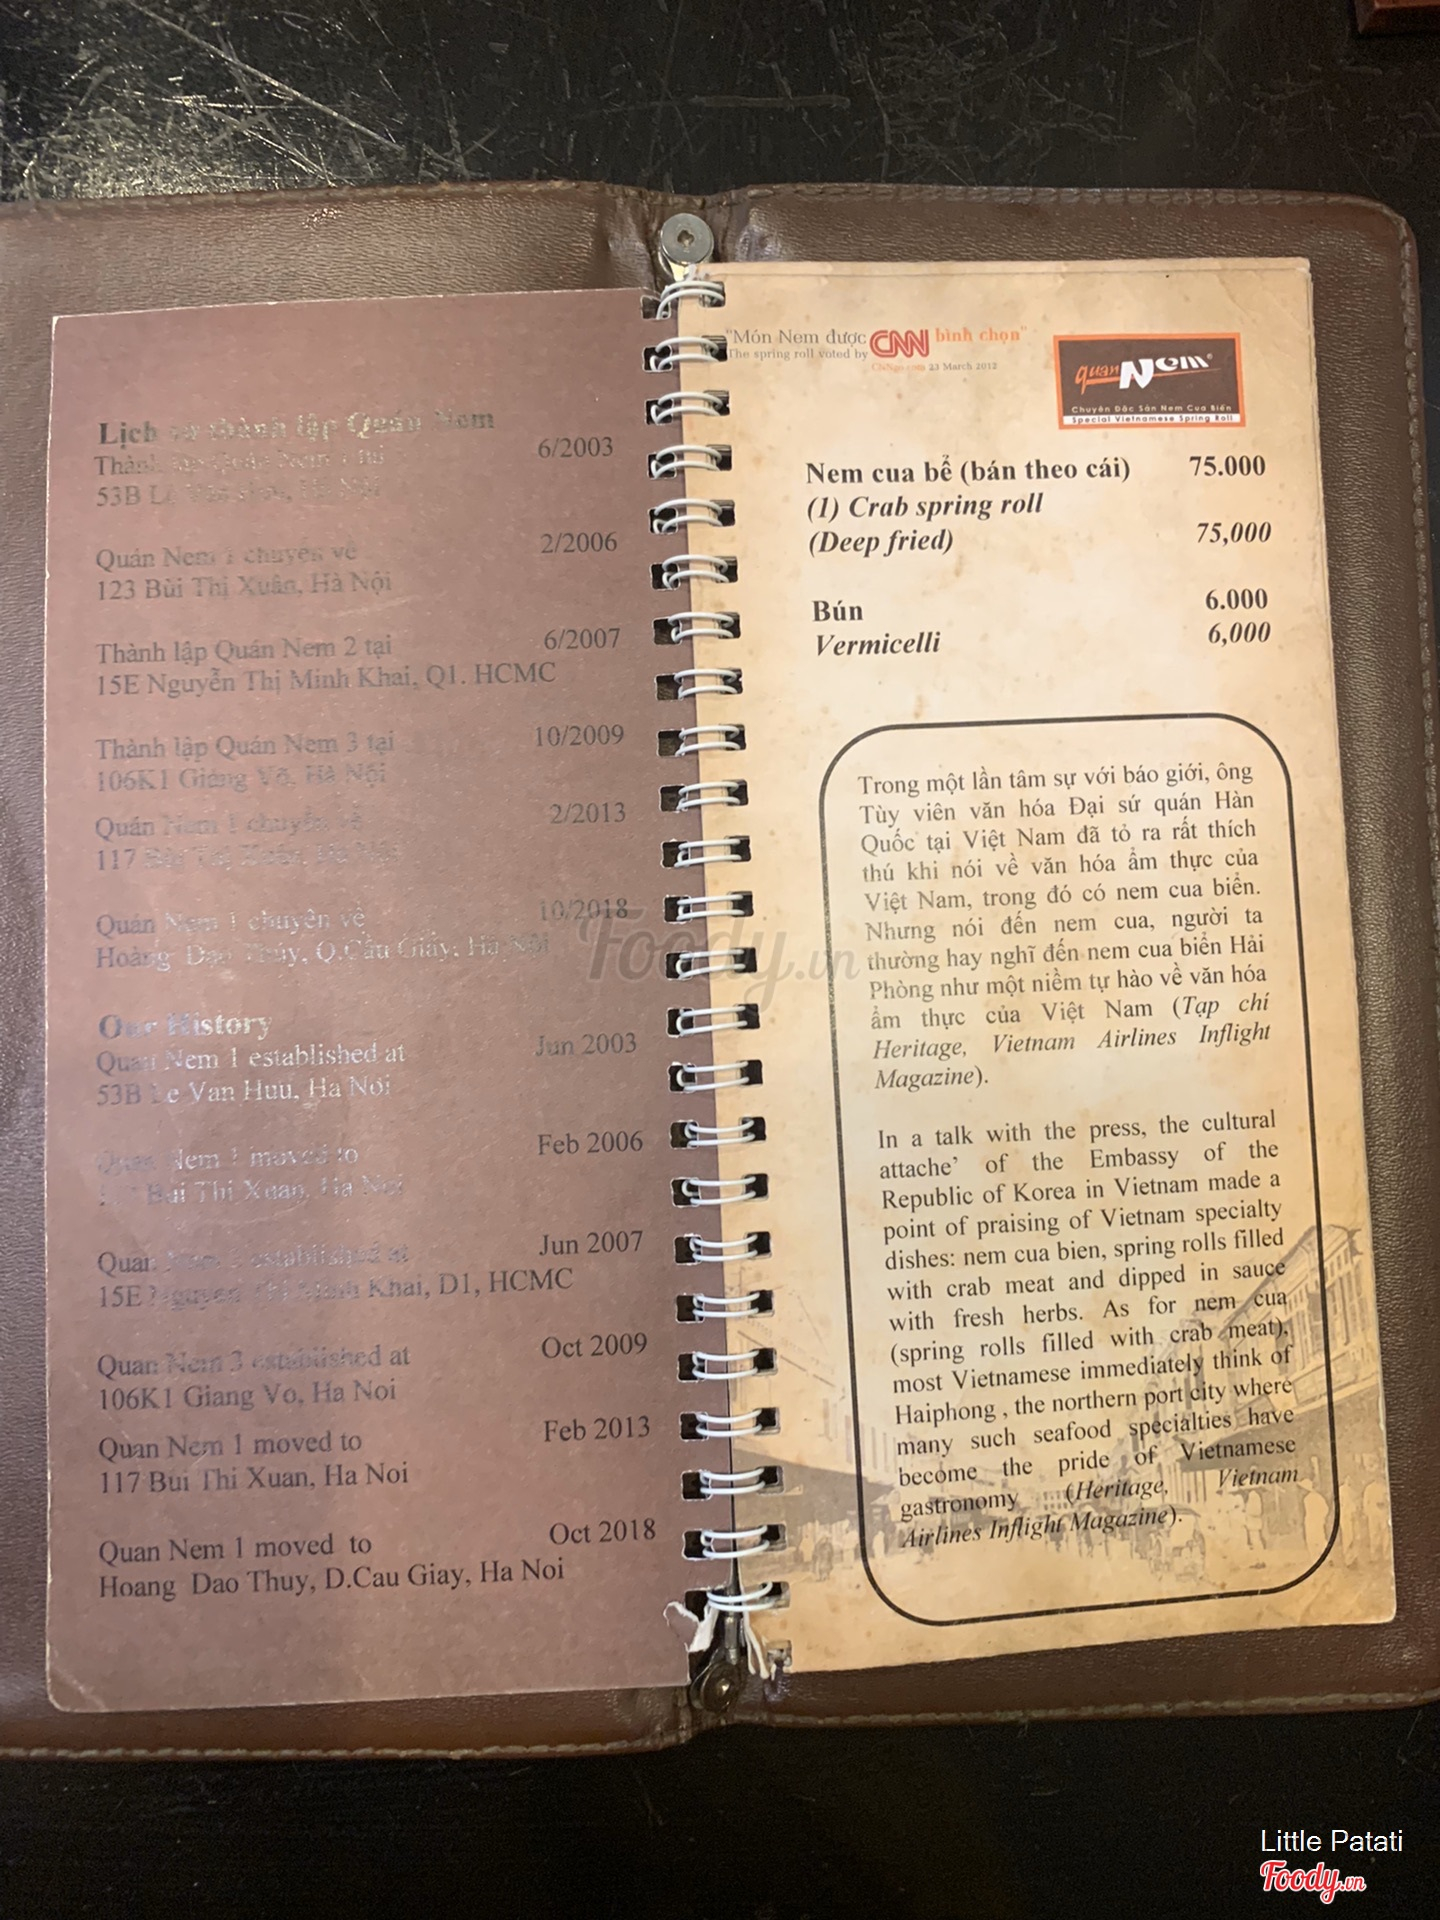 Lịch sử thành lập Quán Nem
Thành lập Quán Nem 1 tại 6/2003
53B Lê Văn Hưu, Hà Nội
Quán Nem 1 chuyển về 2/2006
123 Bùi Thị Xuân, Hà Nội
Thành lập Quán Nem 2 tại 6/2007
15E Nguyễn Thị Minh Khai, Q1. HCMC
Thành lập Quán Nem 3 tại 10/2009
106K1 Giảng Võ, Hà Nội
Quán Nem 1 chuyển về 2/2013
117
Quán Nem 1 chuyển về 10/2018
Hoàng Đạo Thúy, Q.Cầu Giấy, Hà Nội
Our History
Quan Nem 1 established at Jun 2003
53B Le Van Huu, Ha Noi
Quan Nem 1 moved to Feb 2006
Bui Thi Xuan, Ha Noi
Quan Nem established at Jun 2007
15E Nguyen Thi Minh Khai, D1, HCMC
Quan Nem 3 established at Oct 2009
106K1 Giang Vo, Ha Noi
Quan Nem 1 moved to Feb 2013
117 Bui Thi Xuan, Ha Noi
Quan Nem 1 moved to Oct 2018
Hoang Dao Thuy, D.Cau Giay, Ha Noi
"Món Nem được CNN bình chọn"
The spring roll voted by
23 March 2012
quán Nem
Chuyên Đặc Sản Nem Cua Biển
Special Vietnamese Spring Roll
Nem cua bể (bán theo cái) 75.000
(1) Crab spring roll
(Deep fried) 75,000
Bún 6.000
Vermicelli 6,000
Trong một lần tâm sự với báo giới, ông
Tùy viên văn hóa Đại sứ quán Hàn
Quốc tại Việt Nam đã tỏ ra rất thích
thú khi nói về văn hóa ẩm thực của
Việt Nam, trong đó có nem cua biển.
Nhưng nói đến nem cua, người ta
thường hay nghĩ đến nem cua biển Hải
Phòng như một niềm tự hào về văn hóa
ẩm thực của Việt Nam (Tạp chí
Heritage, Vietnam Airlines Inflight
Magazine).
In a talk with the press, the cultural
attache' of the Embassy of the
Republic of Korea in Vietnam made a
point of praising of Vietnam specialty
dishes: nem cua bien, spring rolls filled
with crab meat and dipped in sauce
with fresh herbs. As for nem cua
(spring rolls filled with crab meat),
most Vietnamese immediately think of
Haiphong , the northern port city where
many such seafood specialties have
become the pride of Vietnamese
gastronomy (Heritage, Vietnam
Airlines Inflight Magazine).
Foody.vn
Little Patati
Foody.vn